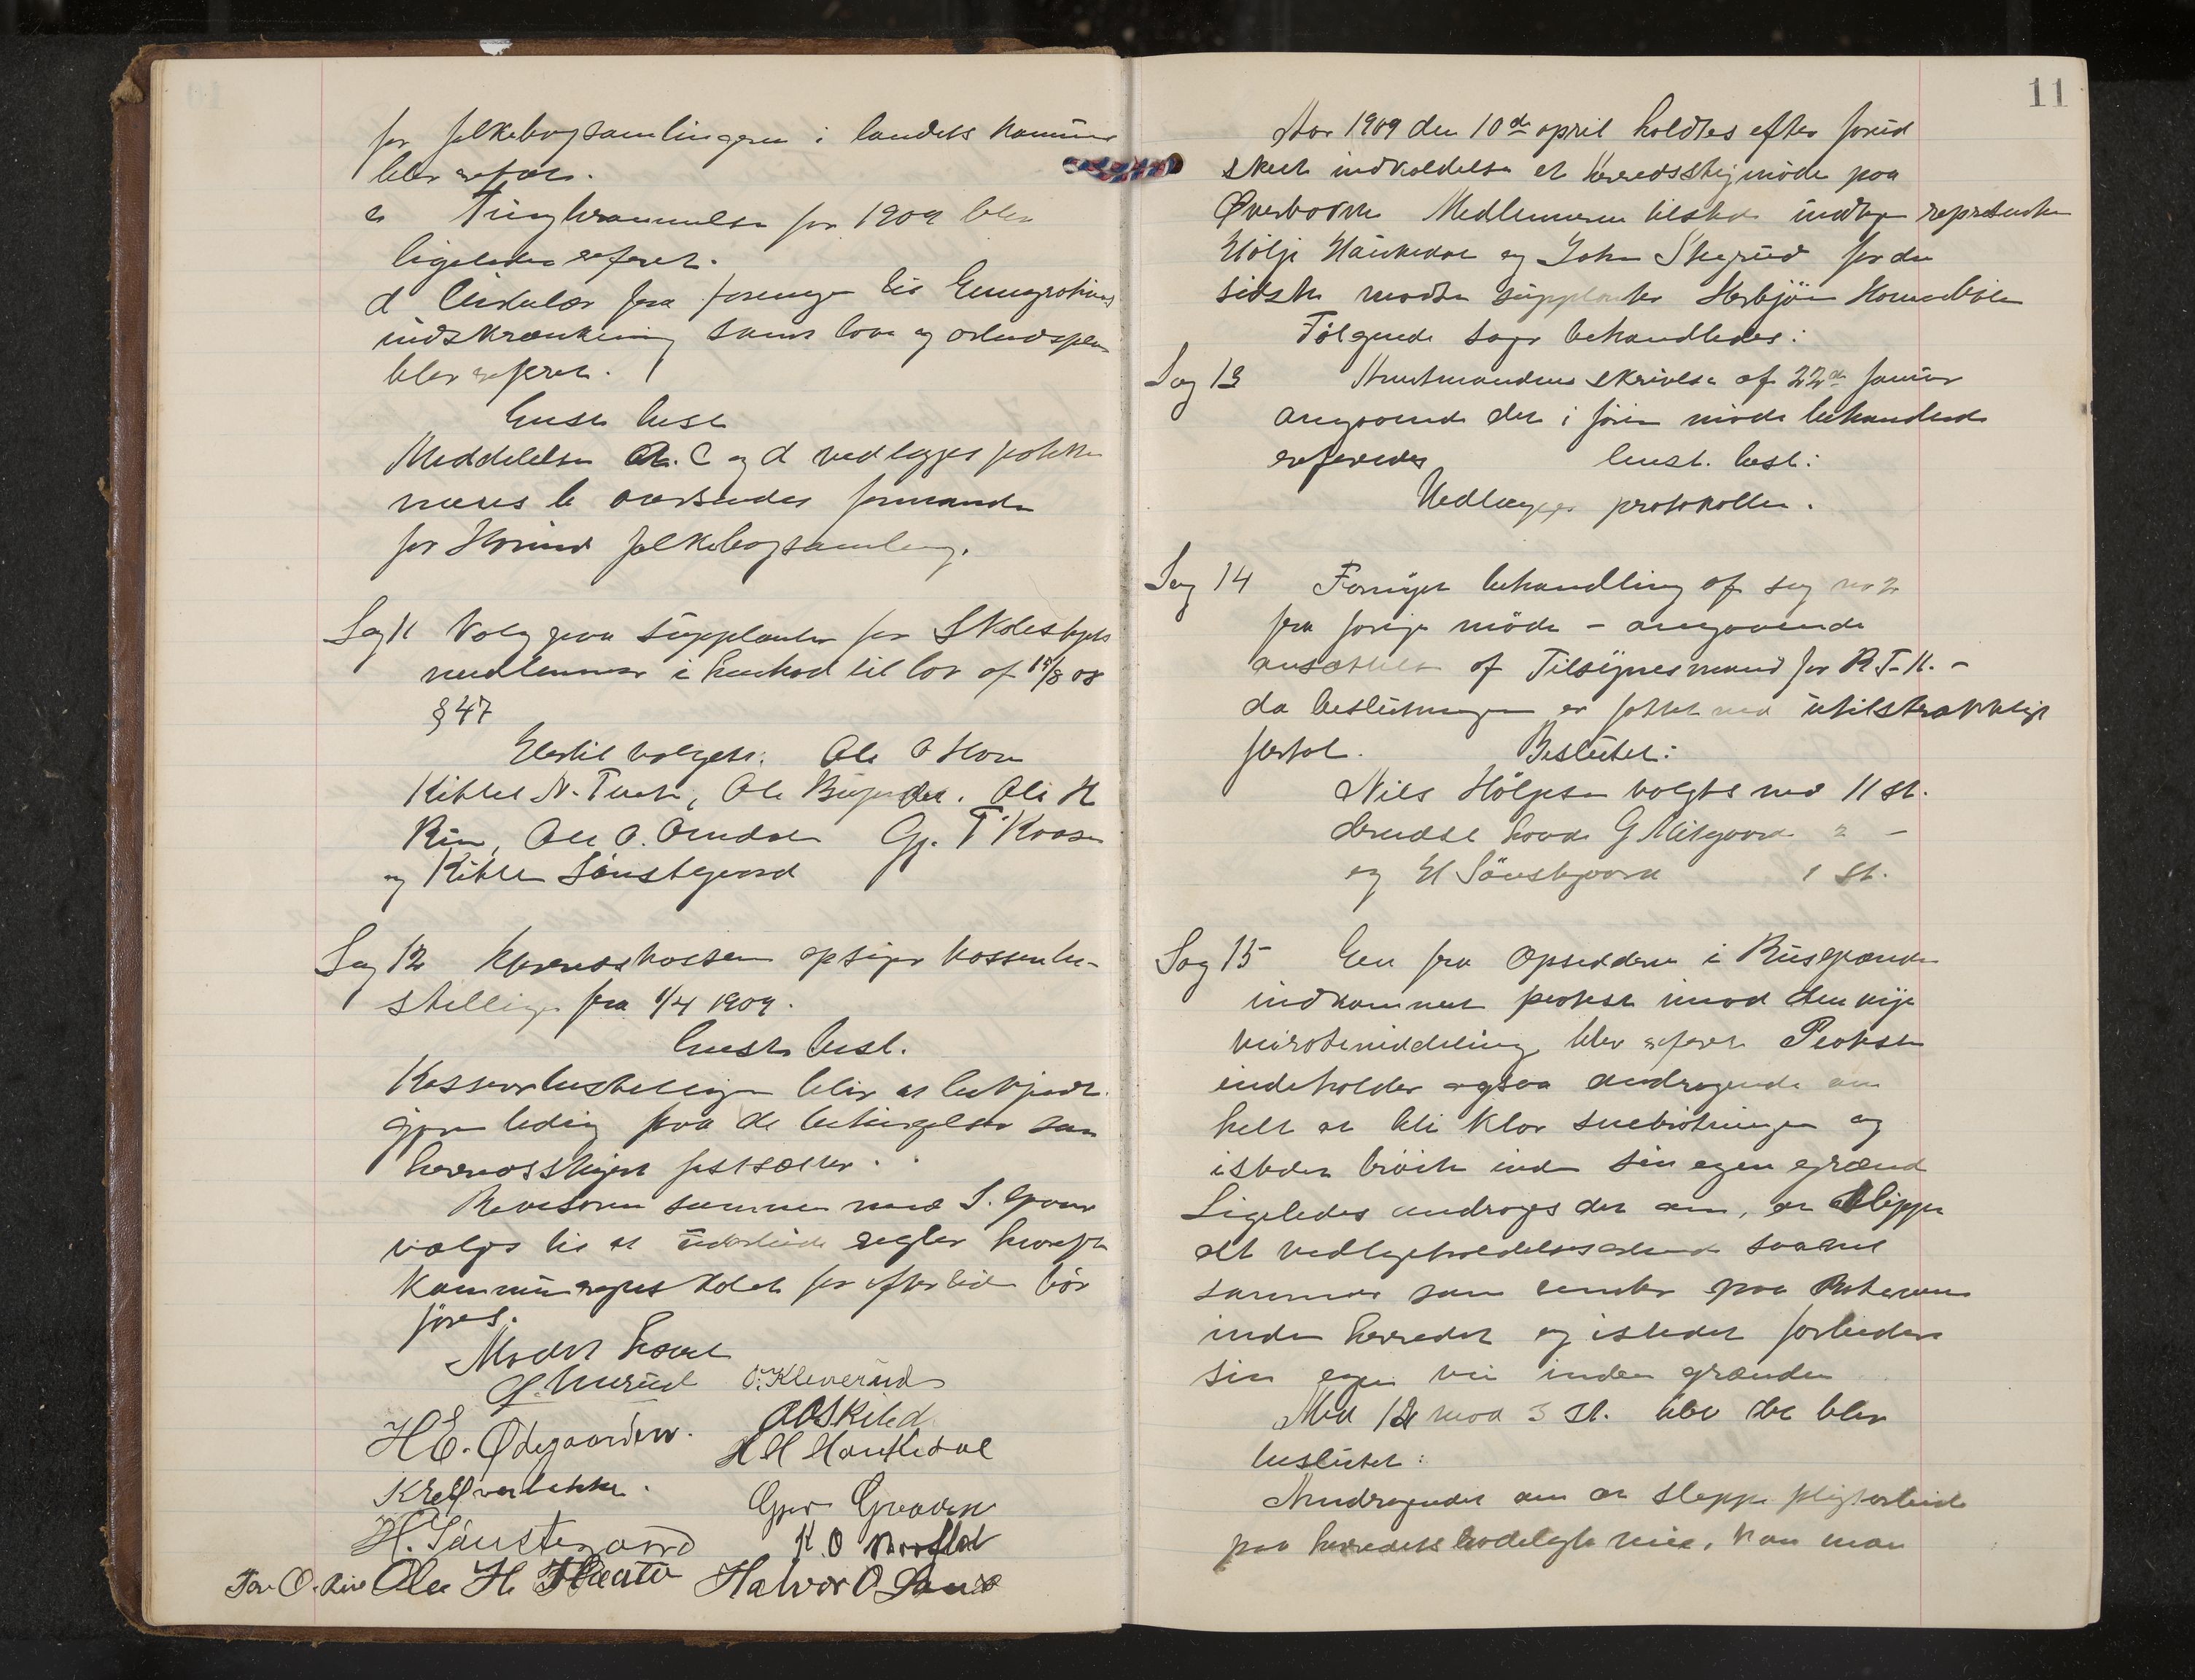 for folkebogsamlingerne i landets kommuner
blev referert.
c Tingberammelse for 1909 blev
ligeledes referert.
d Cirkulær fra foreningen til Emigrationens
indskrænkning samt love og arbeidsplan
blev referert.
Enst. besl.
Meddelelsen a. c og d vedlægges protokollen
mens b oversendes formanden
for Hovind folkebogsamling.
Sag 11 Valg paa supplanter for Skolestyrets
medlemmer i henhold til lov af 15/8 08
§ 47
Hertil valgtes: Ole O Hon
Kittel N. Tveito, Ole . Ole H
Riu, Ole O. Aandal Gj. T Kaasa
og Kittel Sønstegaard
Sag 12 Herredskassereren opsiger kasserbe-
stillingen fra 1/4 1909.
Enst. besl.
Kassererbestillingen blir at bekjendt-
gjøre ledig paa de betingelser som
herredsstyret fastsætter.
Revisoren sammen med S.
vælges til at udarbeide regler hvorefter
kommuneregnskabet for eftertiden bør
føres.
Mødet hævet
O. Kleverud
H E. Ødegaarden. A O Skibed
H H Haukedal
K.
H. Sønstegaard K. O
Tov O. Riu Ole H. Tveito Halvor O
11
Aar 1909 den 10de april holdtes efter forud
skeet indkaldelse et herredsstyrmøde paa
Øverbø Medlemmerne tilstede undtagen repræsentanten
Hølje Haukedal og John Skogrud for den
sidste mødte supplanten Herbjørn
Følgende sager behandledes:
Sag 13 Amtmandens skrivelse af 22de januar
angaaende det i forrige møde behandlede
refereredes Enst. besl:
Vedlægges protokollen.
Sag 14 Fornyet behandling af sag no 2
fra forrige møde - angaaende
ansættelse af Tilsynesmand for R.T.K. -
da beslutningen er fattet med utilstrækkeligt
flertal. Beslutet:
Nils Høljesen valgtes med 11 st.
dernæst havde G Mitgaard 2 -
og H Sønstegaard 1 St.
Sag 15 En fra Opsidderne i Busgrænde
indkommet protest imod den nye
veirodeinddeling blev referert Protesten
indeholder ogsaa andragende om
helt at bli klar snebrøitningen og
isteden brøite inden sin egen grænd
Ligeledes androges det om, at slippe
alt vedligeholdelsesarbeide saavel
sommer som vinter paa Roterne
inden herredet og istedet forbedre
sin egen vei inden grænden
Med 12 mod 3 st. blev det blev
beslutet:
Andragendet om at sleppe pligtarbeide
paa herredets rodelagte veie, kan man